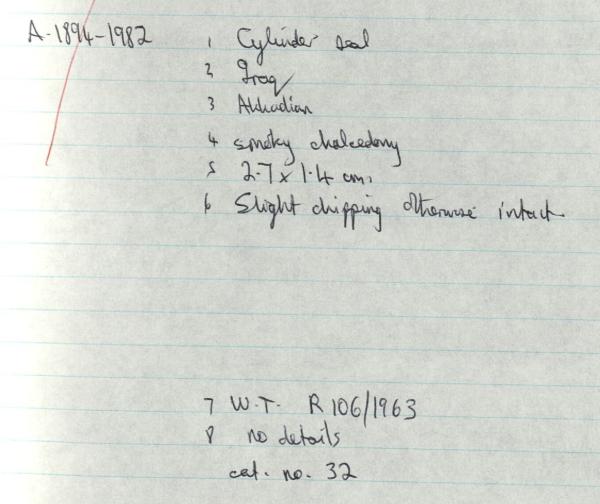 A-1894-1982
1 Cylinder seal
2 Iraq
3 Akkadian
4 smoky chalcedony
5 2.7 x 1.4 cm.
6 Slight chipping otherwise intact
7 W.T. R 106/1963
8 no details
cat. no. 32